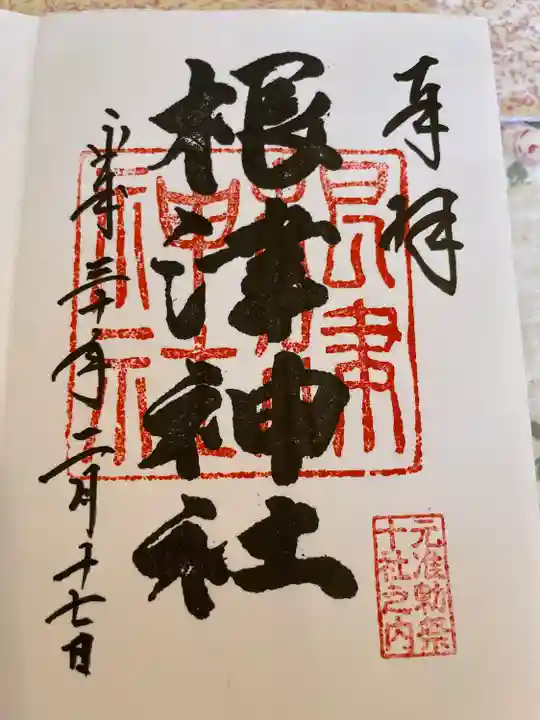 奉拝
根津神社
平成三十年二月十七日
根津
神社
元准勅祭
十社之内